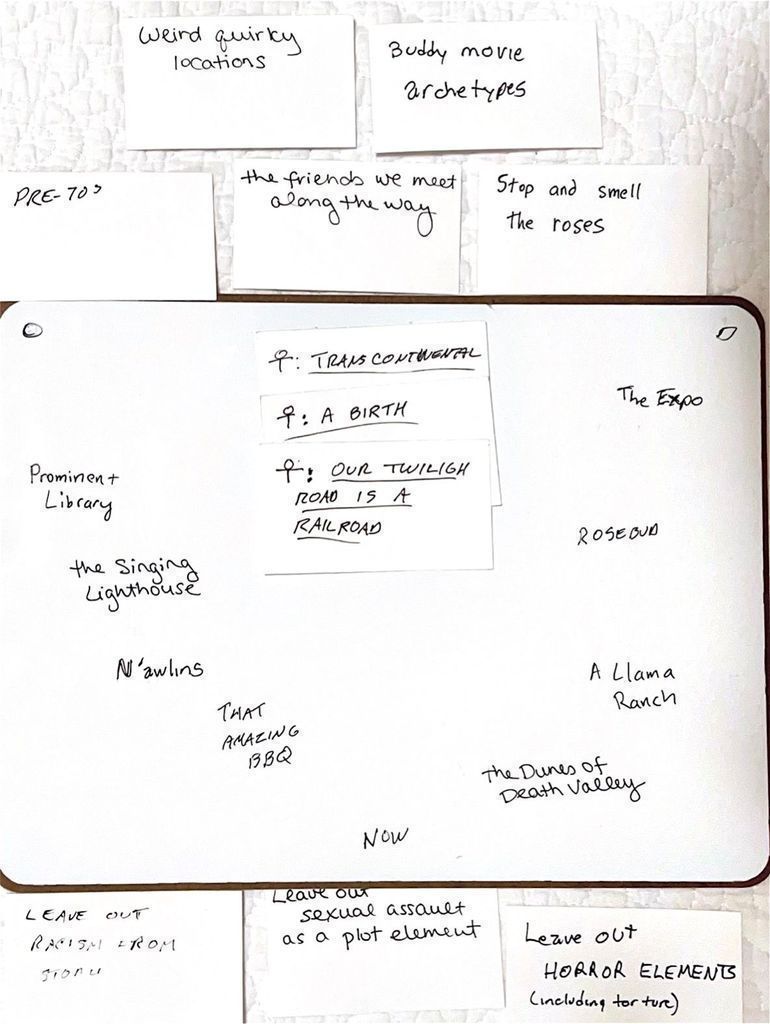 Weird quirky
locations
Buddy movie
archetypes
PRE-70s
the friends we meet
along the way
Stop and smell
the roses
TRANSCONTINENTAL
A BIRTH
OUR TWILIGH
ROAD IS A
RAILROAD
The Expo
Prominent
Library
ROSEBUD
the Singing
Lighthouse
N'awlins
A Llama
Ranch
THAT
AMAZING
BBQ
The Dunes of
Death Valley
NOW
LEAVE OUT
RACISM FROM
STORY
Leave out
sexual assault
as a plot element
Leave out
HORROR ELEMENTS
(including torture)